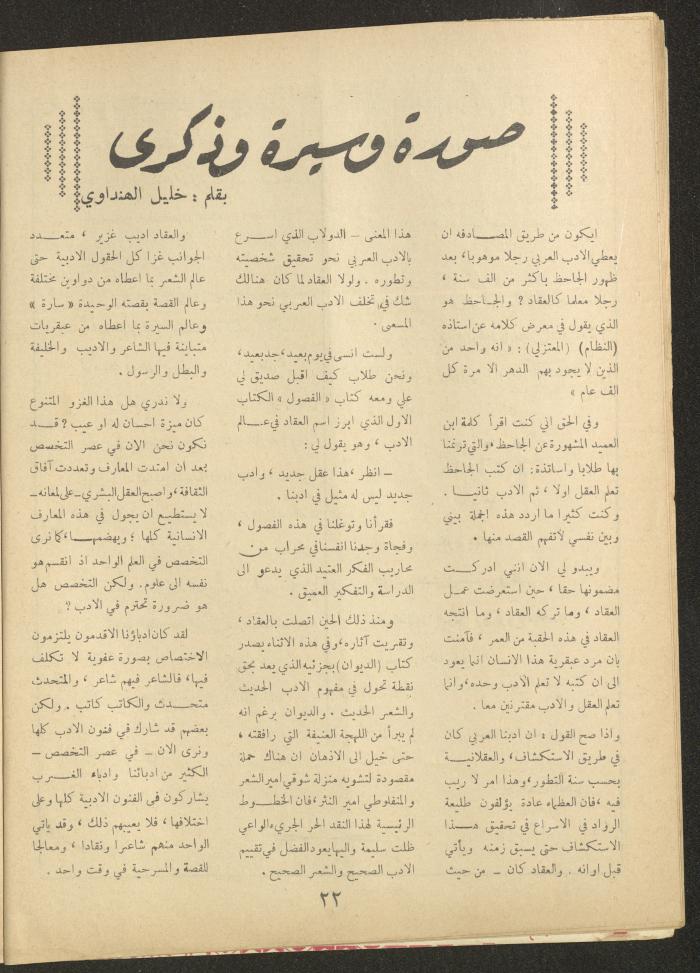 صورة وسيرة وذكرى
بقلم : خليل الهنداوي
ايكون من طريق المصادفه ان
يعطي الادب العربي رجلا موهوبا، بعد
ظهور الجاحظ باكثر من الف سنة ،
رجلا معلما كالعقاد ? والجاحظ هو
الذي يقول في معرض كلامه عن استاذه
(النظام) (المعتزلي) : « انه واحد من
الذين لا يجود بهم الدهر الا مرة كل
الف عام »
وفي الحق اني كنت اقرأ كلمة ابن
العميد المشهورة عن الجاحظ، والتي ترنمنا
بها طلابا واساتذة: ان كتب الجاحظ
تعلم العقل اولا ، ثم الادب ثانيا .
وكنت كثيرا ما اردد هذه الجملة بيني
وبين نفسي لأتفهم القصد منها .
ويبدو لي الان انني ادركت
مضمونها حقا ، حين استعرضت عمل
العقاد ، وما تركه العقاد ، وما انتجه
العقاد في هذه الحقبة من العمر ، فآمنت
بان مرد عبقرية هذا الانسان انما يعود
الى ان كتبه لا تعلم الادب وحده، وانما
تعلم العقل والادب مقترنين معا .
واذا صح القول : ان ادبنا العربي كان
في طريق الاستكشاف، والعقلانية
بحسب سنة التطور، وهذا امر لا ريب
فيه ، فان العظماء عادة يؤلفون طليعة
الرواد في الاسراع في تحقيق هذا
الاستكشاف حتى يسبق زمنه ويأتي
قبل اوانه . والعقاد كان – من حيث
هذا المعنى – الدولاب الذي اسرع
بالادب العربي نحو تحقيق شخصيته
وتطوره . ولولا العقاد لما كان هنالك
شك في تخلف الادب العربي نحو هذا
المسعى .
ولست انسى في يوم بعيد، جد بعيد،
ونحن طلاب كيف اقبل صديق لي
علي ومعه كتاب « الفصول » الكتاب
الاول الذي ابرز اسم العقاد في عالم
الادب ، وهو يقول لي :
– انظر ، هذا عقل جديد ، وادب
جديد ليس له مثيل في ادبنا .
فقرأنا وتوغلنا في هذه الفصول ،
وفجاة وجدنا انفسنا في محراب من
محاريب الفكر العتيد الذي يدعو الى
الدراسة والتفكير العميق .
ومنذ ذلك الحين اتصلت بالعقاد ،
وتقريت آثاره، وفي هذه الاثناء يصدر
كتاب (الديوان) بجزئيه الذي يعد بحق
نقطة تحول في مفهوم الادب الحديث
والشعر الحديث . والديوان برغم انه
لم يبرأ من اللهجة العنيفة التي رافقته ،
حتى خيل الى الاذهان ان هناك حملة
مقصودة لتشويه منزلة شوقي امير الشعر
والمنفلوطي امير النثر، فان الخطوط
الرئيسية لهذا النقد الحر الجريء الواعي
ظلت سليمة واليها يعود الفضل في تقييم
الادب الصحيح والشعر الصحيح .
والعقاد اديب غزير ، متعدد
الجوانب غزا كل الحقول الادبية حتى
عالم الشعر بما اعطاه من دواوين مختلفة
وعالم القصة بقصته الوحيدة « سارة »
وعالم السيرة بما اعطاه من عبقريات
متباينة فيها الشاعر والاديب والخليفة
والبطل والرسول .
ولا ندري هل هذا الغزو المتنوع
كان ميزة احسان له او عيب ? قد
نكون نحن الان في عصر التخصص
بعد ان امتدت المعارف وتعددت آفاق
الثقافة ، واصبح العقل البشري – على لمعانه –
لا يستطيع ان يجول في هذه المعارف
الانسانية كلها ؛ ويهضمها، كما نرى
التخصص في العلم الواحد اذ انقسم هو
نفسه الى علوم . ولكن التخصص هل
هو ضرورة تحترم في الادب ?
لقد كان ادباؤنا الاقدمون يلتزمون
الاختصاص بصورة عفوية لا تكلف
فيها، فالشاعر فيهم شاعر ، والمتحدث
متحدث والكاتب كاتب . ولكن
بعضهم قد شارك في فنون الادب كلها
ونرى الان – في عصر التخصص –
الكثير من ادبائنا وادباء الغرب
يشاركون في الفنون الادبية كلها وعلى
اختلافها ، فلا يعيبهم ذلك ، وقد يأتي
الواحد منهم شاعرا ونقادا ، ومعالجا
للقصة والمسرحية في وقت واحد .
٢٢